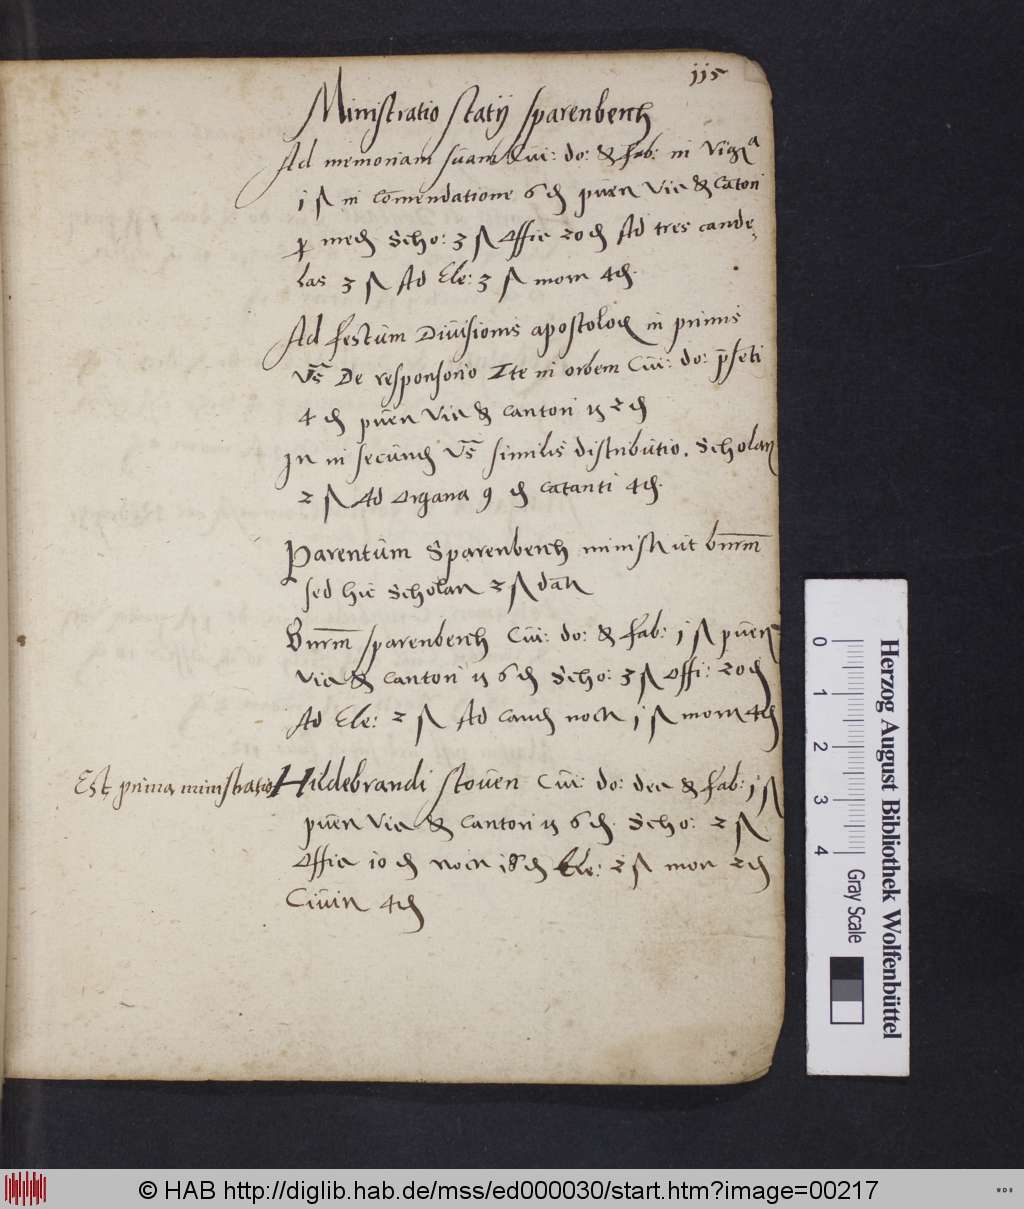 115
Ministratio statij sparenberch
Ad memoriam suam Cui: do: & fab: in Viga
1 ß in comendatione 6 d pueri Vic & Cantori
p med Scho: 3 ß Offic 20 d Ad tres cande,
las 3 ß Ad Ele: 3 ß mom 4 d.
Ad festum Diuisionis apostolor in primis
Vs De responsorio Ite in orbem Cui: do: pseti
4 d puer Vic & Cantori 2 d
It in secund Vs similis distributio. Scholar
2 ß Ad Organa 9 d Catanti 4 d.
Parentum Sparenberch ministr ut
sed hic Scholar 2 ß dar
sparenberch Cui: do: & fab: 1 ß puer
Vic & Cantori 6 d Scho: 3 ß Offi: 20 d
Ad Ele: 2 ß Ad 1 ß mom 4 d
Est prima ministratio Hildebrandi stouen Cui: do: dec & fab: 1 ß
puer Vic & Cantori 6 d. Scho: 2 ß
Offic 10 d 18 d Ele: 2 ß mon 2 d
Ciuir 4 d
Herzog August Bibliothek Wolfenbüttel
0 1 2 3 4 Gray Scale
© HAB http://diglib.hab.de/mss/ed000030/start.htm?image=00217